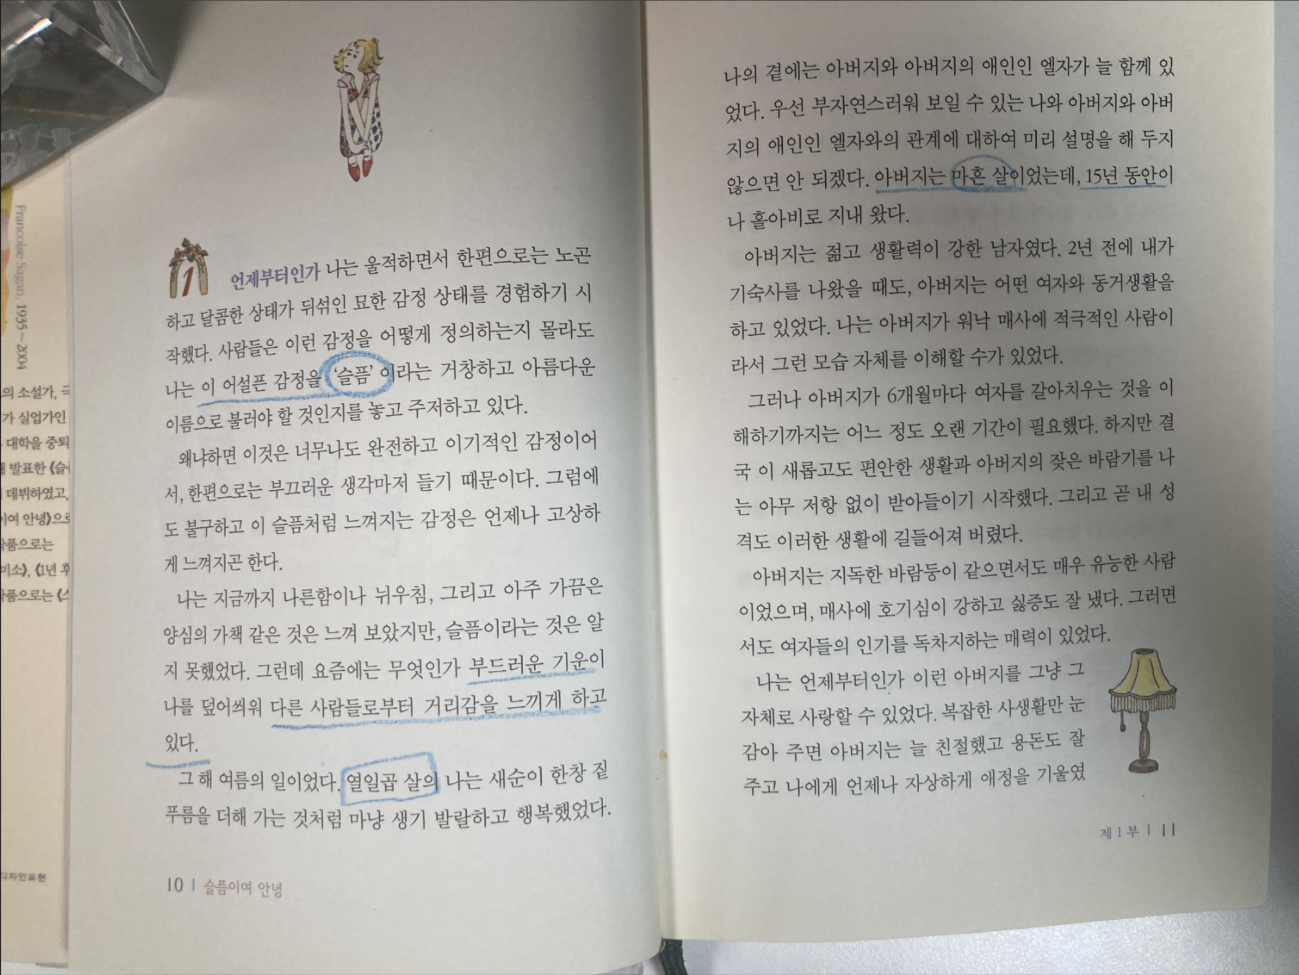 Francoise Sagan, 1935~2004
의 소설가, 극
가 실업가인
대학을 중퇴
발표한 《슬
데뷔하였고,
이여 안녕》으로
작품으로는
미소》, 《1년 후
작품으로는 《스
디자인표현
1
언제부터인가 나는 울적하면서 한편으로는 노곤
하고 달콤한 상태가 뒤섞인 묘한 감정 상태를 경험하기 시
작했다. 사람들은 이런 감정을 어떻게 정의하는지 몰라도
나는 이 어설픈 감정을 '슬픔' 이라는 거창하고 아름다운
이름으로 불러야 할 것인지를 놓고 주저하고 있다.
왜냐하면 이것은 너무나도 완전하고 이기적인 감정이어
서, 한편으로는 부끄러운 생각마저 들기 때문이다. 그럼에
도 불구하고 이 슬픔처럼 느껴지는 감정은 언제나 고상하
게 느껴지곤 한다.
나는 지금까지 나른함이나 뉘우침, 그리고 아주 가끔은
양심의 가책 같은 것은 느껴 보았지만, 슬픔이라는 것은 알
지 못했었다. 그런데 요즘에는 무엇인가 부드러운 기운이
나를 덮어씌워 다른 사람들로부터 거리감을 느끼게 하고
있다.
그 해 여름의 일이었다. 열일곱 살의 나는 새순이 한창 짙
푸름을 더해 가는 것처럼 마냥 생기 발랄하고 행복했었다.
10 | 슬픔이여 안녕
나의 곁에는 아버지와 아버지의 애인인 엘자가 늘 함께 있
었다. 우선 부자연스러워 보일 수 있는 나와 아버지와 아버
지의 애인인 엘자와의 관계에 대하여 미리 설명을 해 두지
않으면 안 되겠다. 아버지는 마흔 살이었는데, 15년 동안이
나 홀아비로 지내 왔다.
아버지는 젊고 생활력이 강한 남자였다. 2년 전에 내가
기숙사를 나왔을 때도, 아버지는 어떤 여자와 동거생활을
하고 있었다. 나는 아버지가 워낙 매사에 적극적인 사람이
라서 그런 모습 자체를 이해할 수가 있었다.
그러나 아버지가 6개월마다 여자를 갈아치우는 것을 이
해하기까지는 어느 정도 오랜 기간이 필요했다. 하지만 결
국 이 새롭고도 편안한 생활과 아버지의 잦은 바람기를 나
는 아무 저항 없이 받아들이기 시작했다. 그리고 곧 내 성
격도 이러한 생활에 길들어져 버렸다.
아버지는 지독한 바람둥이 같으면서도 매우 유능한 사람
이었으며, 매사에 호기심이 강하고 싫증도 잘 냈다. 그러면
서도 여자들의 인기를 독차지하는 매력이 있었다.
나는 언제부터인가 이런 아버지를 그냥 그
자체로 사랑할 수 있었다. 복잡한 사생활만 눈
감아 주면 아버지는 늘 친절했고 용돈도 잘
주고 나에게 언제나 자상하게 애정을 기울였
제1부 | 11